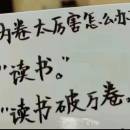 内卷太厉害怎么办
“读书。”
“读书破万卷。